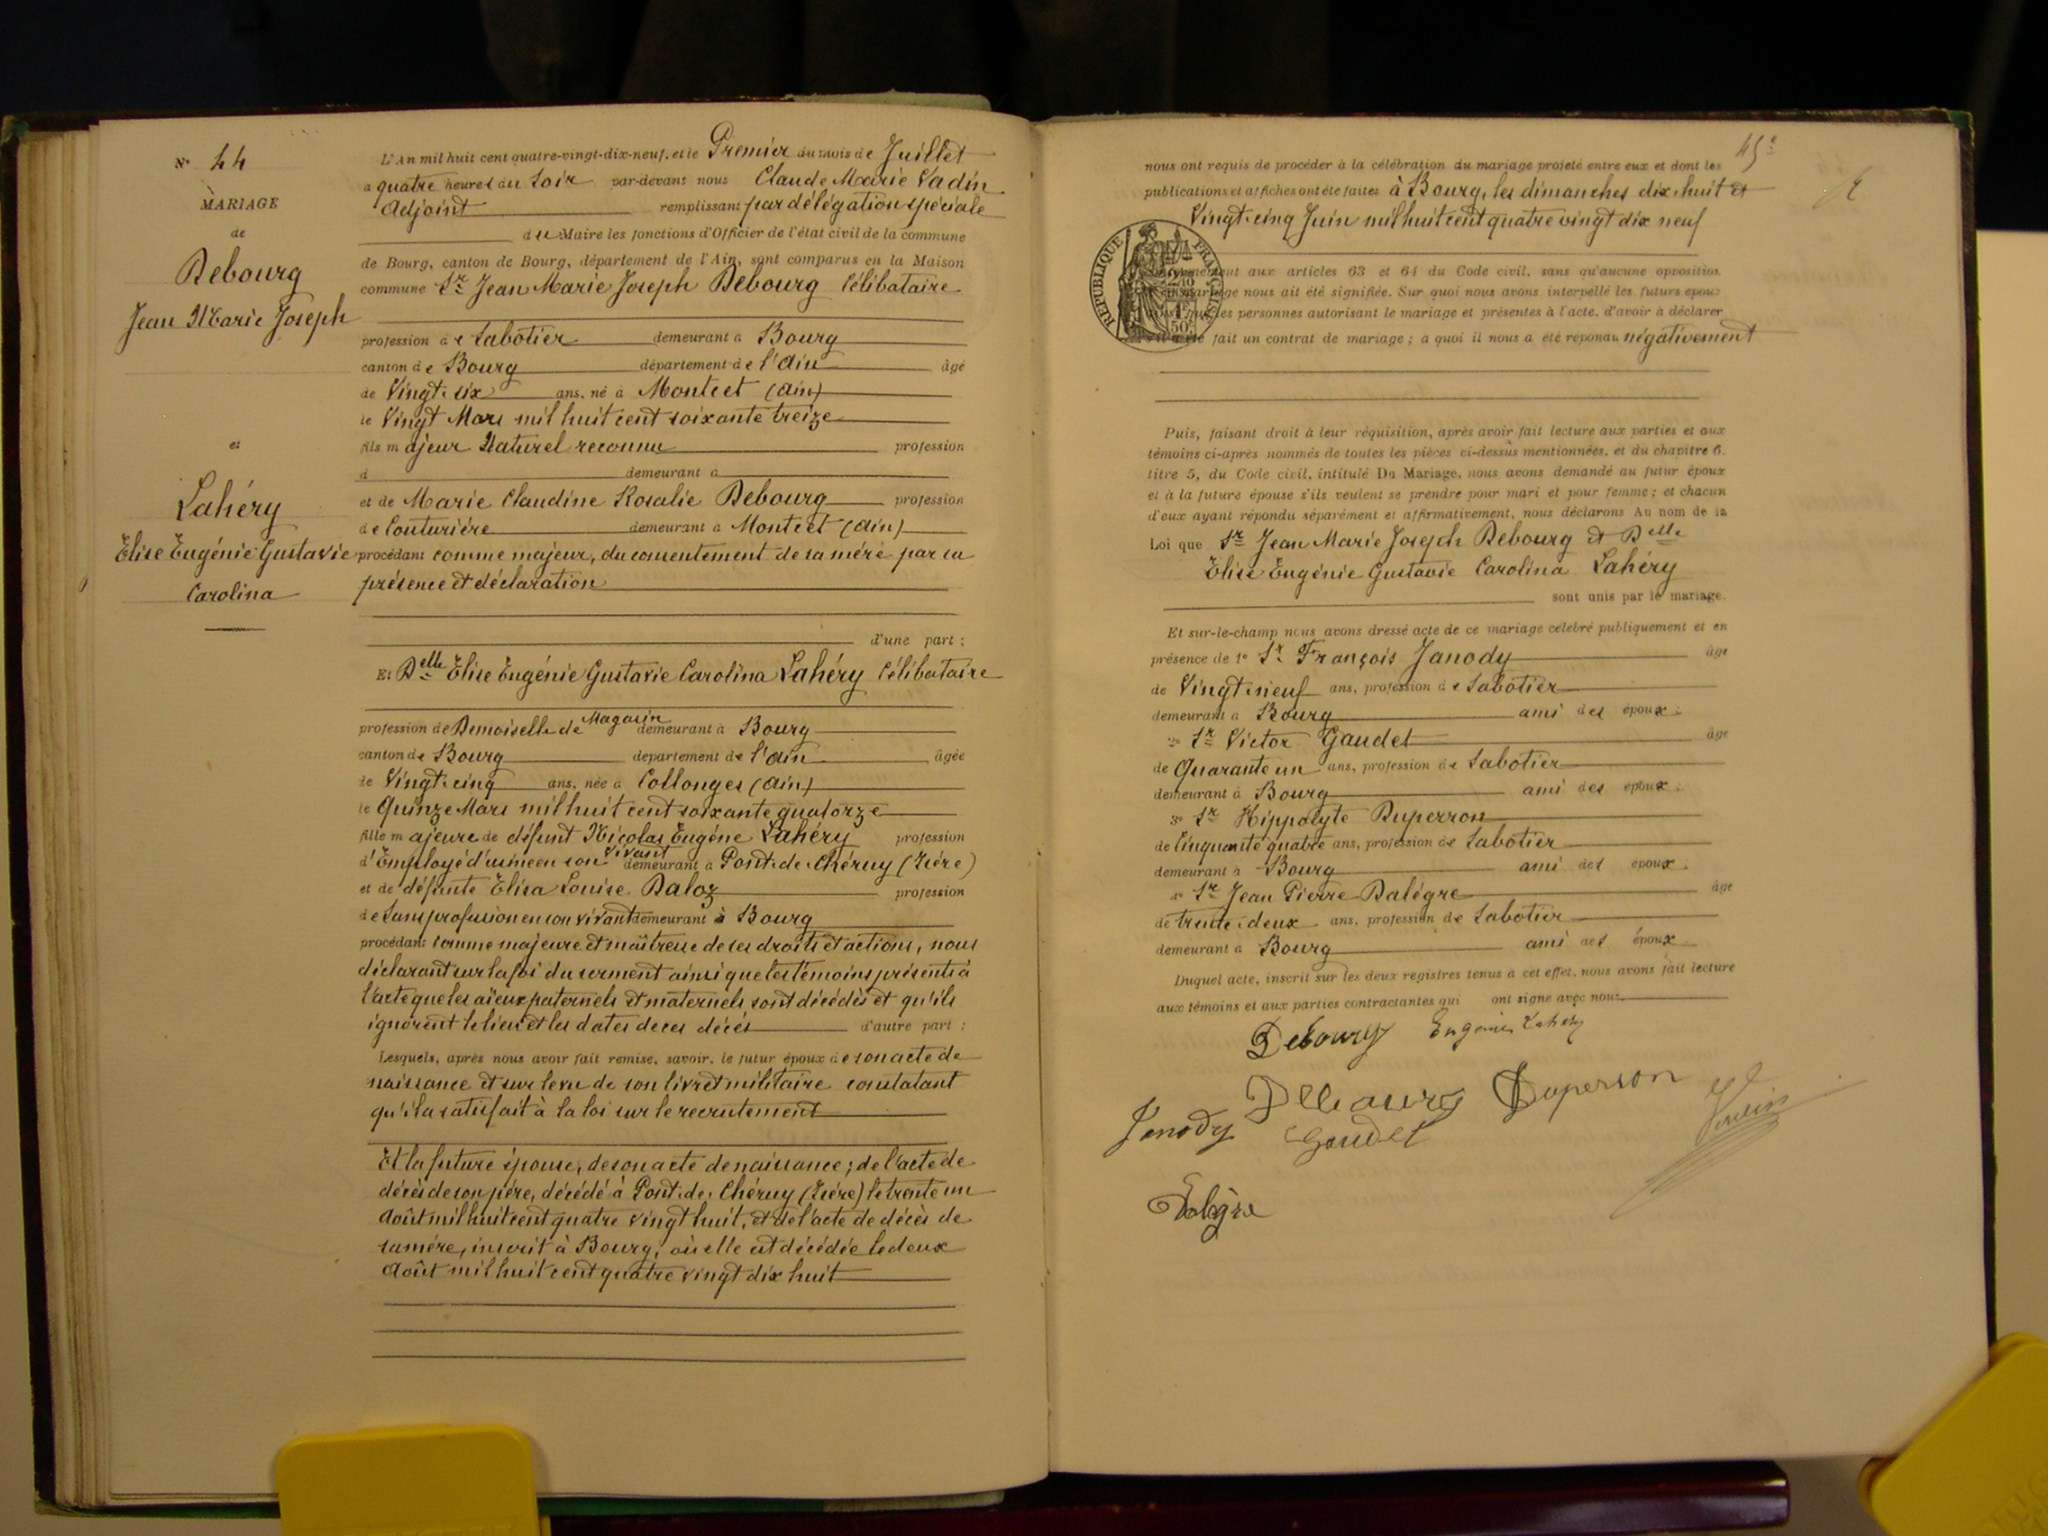 N° 44
MARIAGE
de
Debourg
Jean Marie Joseph
et
Lahéry
Elise Eugénie Gustavie
Carolina
L'An mil huit cent quatre-vingt-dix-neuf, et le Premier du mois de Juillet
à quatre heures du Soir par-devant nous Claude Marie Vadin
Adjoint remplissant par délégation spéciale
du Maire les fonctions d'Officier de l'état civil de la commune
de Bourg, canton de Bourg, département de l'Ain, sont comparus en la Maison
commune Sr Jean Marie Joseph Debourg Célibataire
profession de Sabotier demeurant à Bourg
canton de Bourg département de l'Ain âgé
de Vingt-six ans, né à Montcet (Ain)
le Vingt Mars mil huit cent soixante treize
fils majeur Naturel reconnu profession
d demeurant à
et de Marie Claudine Rosalie Debourg profession
de Couturière demeurant à Montcet (Ain)
procédant comme majeur, du consentement de sa mère par sa
présence et déclaration
d'une part ;
Et Delle Elise Eugénie Gustavie Carolina Lahéry Célibataire
profession de Demoiselle de Magasin demeurant à Bourg
canton de Bourg département de l'Ain âgée
de Vingt-cinq ans, née à Collonges (Ain)
le Quinze Mars mil huit cent soixante quatorze
fille majeure de défunt Nicolas Eugène Lahéry profession
d'Employé d'usine en son vivant demeurant à Pont-de-Chéruy (Isère)
et de défunte Elisa Louise Daloz profession
de Sans profession en son vivant demeurant à Bourg
procédant comme majeure et maîtresse de ses droits et actions, nous
déclarant sur la foi du serment ainsi que les témoins présents à
l'acte que les aïeux paternels et maternels sont décédés et qu'ils
ignorent le lieu et les dates de ces décès d'autre part ;
Lesquels, après nous avoir fait remise, savoir, le futur époux de son acte de
naissance et sur le vu de son livret militaire constatant
qu'il a satisfait à la loi sur le recrutement
Et la future épouse, de son acte de naissance ; de l'acte de
décès de son père, décédé à Pont-de-Chéruy (Isère) le trente un
Août mil huit cent quatre vingt huit, et de l'acte de décès de
sa mère, inscrit à Bourg, où elle est décédée le deux
Août mil huit cent quatre vingt dix huit
45e
nous ont requis de procéder à la célébration du mariage projeté entre eux et dont les
publications et affiches ont été faites à Bourg, les dimanches dix-huit et
Vingt-cinq Juin mil huit cent quatre vingt dix neuf
RÉPUBLIQUE FRANÇAISE
aux articles 63 et 64 du Code civil, sans qu'aucune opposition
mariage nous ait été signifiée. Sur quoi nous avons interpellé les futurs époux
les personnes autorisant le mariage et présentes à l'acte, d'avoir à déclarer
fait un contrat de mariage ; à quoi il nous a été répondu négativement
Puis, faisant droit à leur réquisition, après avoir fait lecture aux parties et aux
témoins ci-après nommés de toutes les pièces ci-dessus mentionnées, et du chapitre 6,
titre 5, du Code civil, intitulé Du Mariage, nous avons demandé au futur époux
et à la future épouse s'ils veulent se prendre pour mari et pour femme ; et chacun
d'eux ayant répondu séparément et affirmativement, nous déclarons Au nom de la
Loi que Sr Jean Marie Joseph Debourg et Delle
Elise Eugénie Gustavie Carolina Lahéry
sont unis par le mariage.
Et sur-le-champ nous avons dressé acte de ce mariage célébré publiquement et en
présence de 1° Sr François Janody âgé
de Vingt-neuf ans, profession de Sabotier
demeurant à Bourg ami des époux ;
2° Sr Victor Gaudet âgé
de Quarante un ans, profession de Sabotier
demeurant à Bourg ami des époux ;
3° Sr Hippolyte Duperron
de Cinquante quatre ans, profession de Sabotier
demeurant à Bourg ami des époux ;
4° Sr Jean Pierre Dalègre âgé
de trente-deux ans, profession de Sabotier
demeurant à Bourg ami des époux
Duquel acte, inscrit sur les deux registres tenus à cet effet, nous avons fait lecture
aux témoins et aux parties contractantes qui ont signé avec nous
Debourg Eugénie Lahéry
Debourg Duperron
Janody Gaudet
Vadin
Dalègre